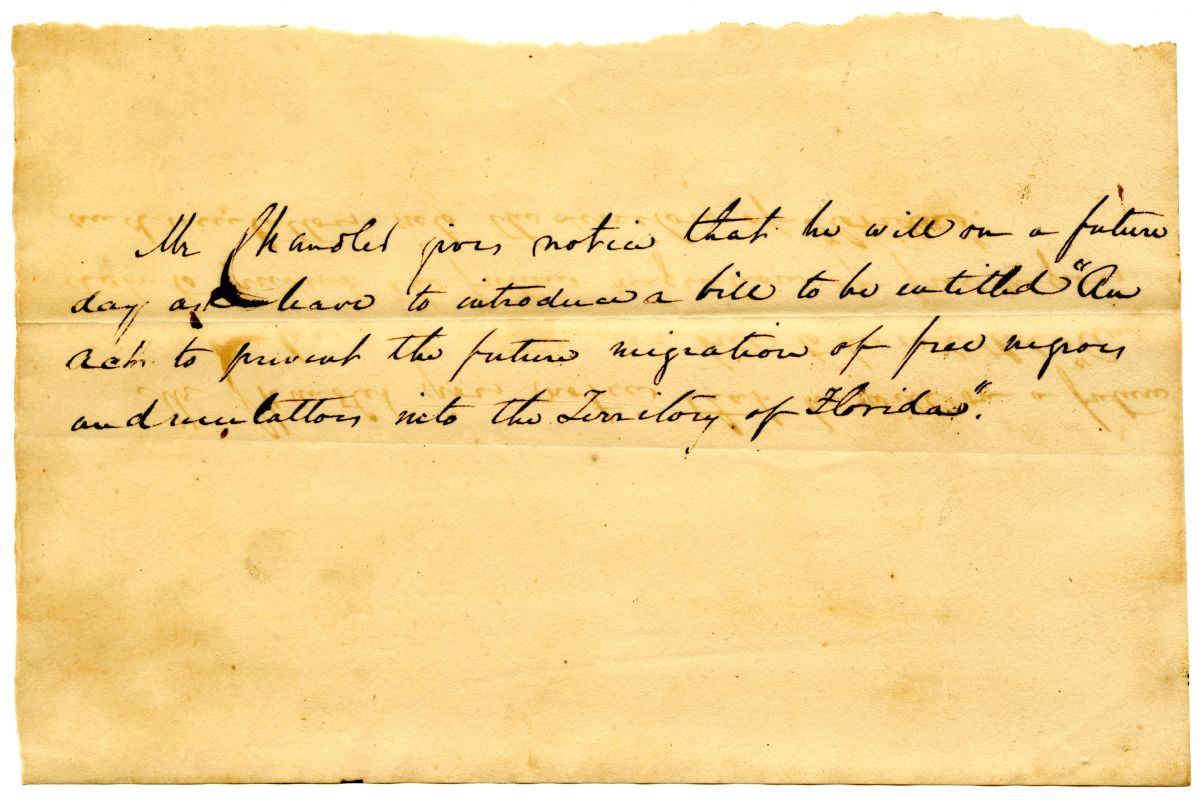 Mr Chandler gives notice that he will on a future
day ask leave to introduce a bill to be entitled "An
act to prevent the future migration of free negroes
and mulattoes into the Territory of Florida".